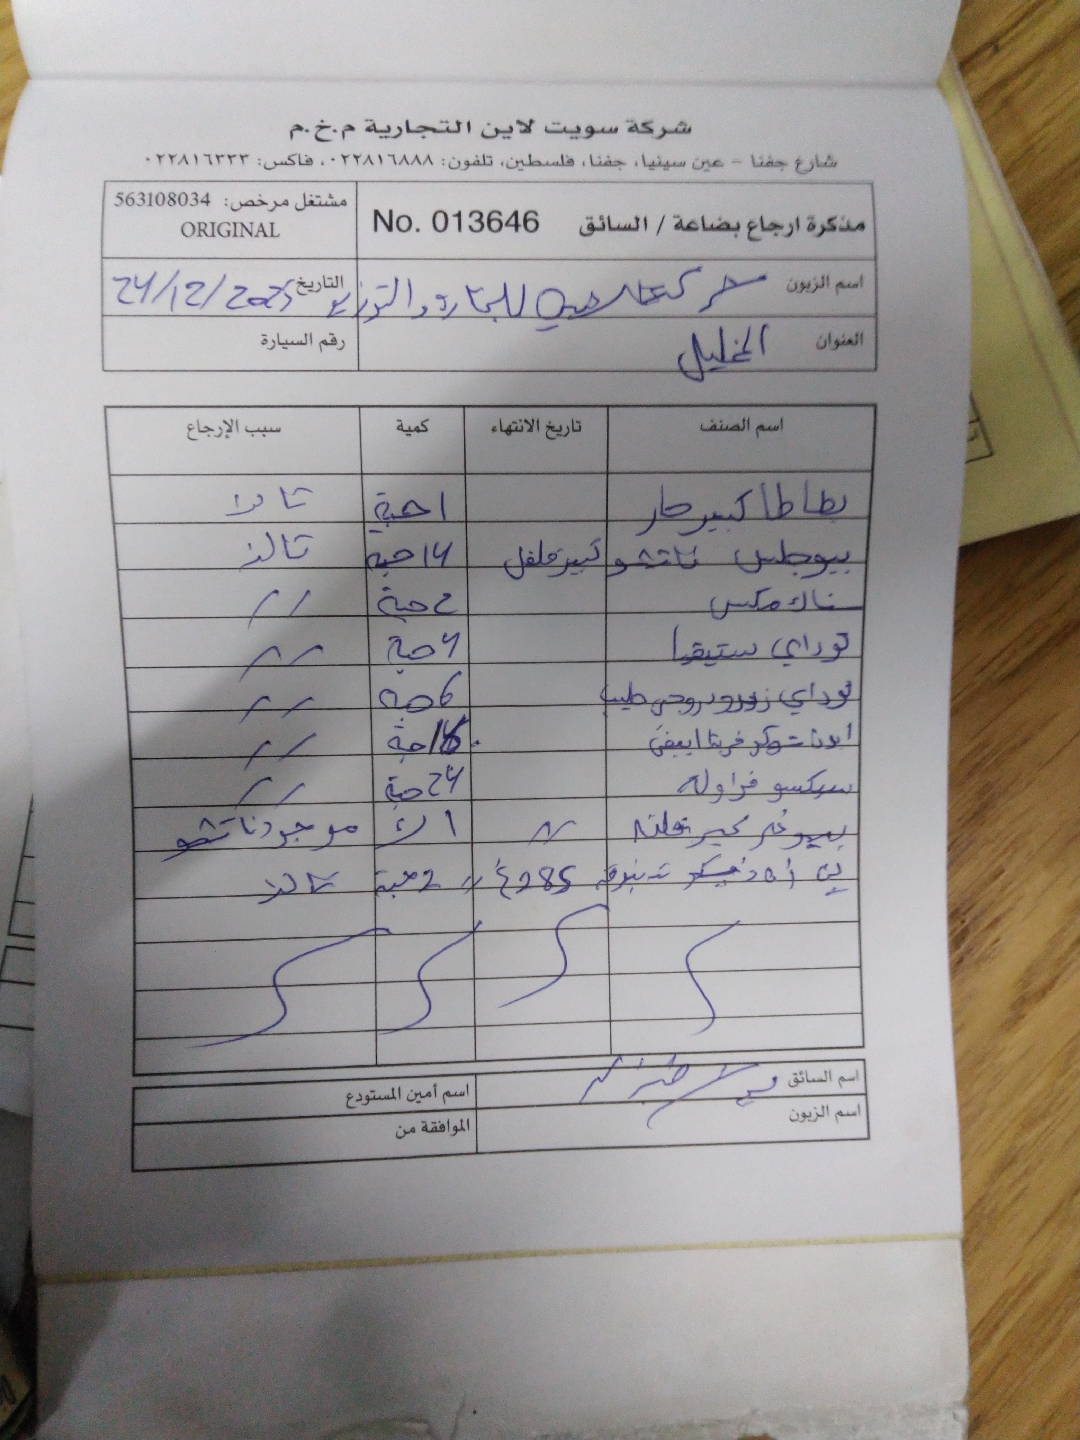 شركة سويت لاين التجارية م.خ.م
شارع جفنا - عين سينيا، جفنا، فلسطين، تلفون: ٠٢٢٨١٦٨٨٨، فاكس: ٠٢٢٨١٦٣٣٣
مذكرة ارجاع بضاعة / السائق No. 013646 مشتغل مرخص: 563108034
ORIGINAL
اسم الزبون للتجارة والتوزيع التاريخ 24/12/2025
العنوان الخليل رقم السيارة
اسم الصنف تاريخ الانتهاء كمية سبب الإرجاع
بطاطا كبير حار 1 حبة تالف
بيوجلس ناتشو كبير فلفل 14 حبة تالف
سناك مكس 2 حبة //
توداي ستيفيا 4 حبة //
توداي 6 حبة //
ابيض حبة //
سيكسو فراوله 24 حبة //
كبير // 1 ك موجود ناتشو
285 غ // 2 حبة تالف
اسم السائق اسم أمين المستودع
اسم الزبون الموافقة من